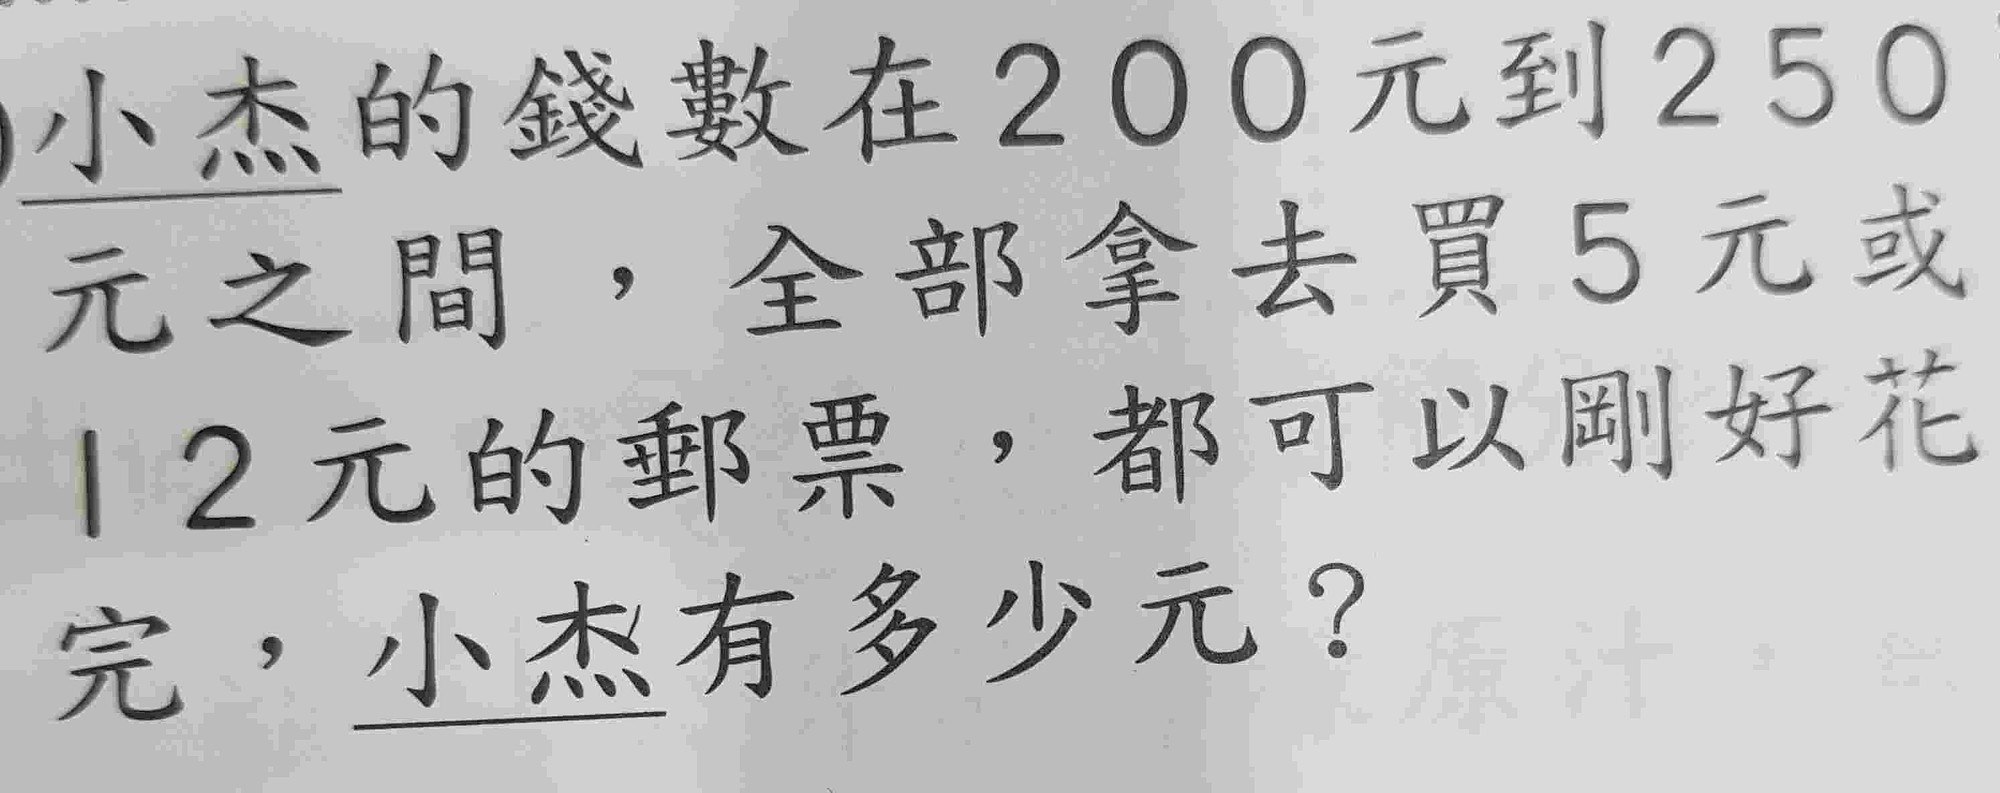 )小杰的錢數在200元到250
元之間，全部拿去買5元或
12元的郵票，都可以剛好花
完，小杰有多少元？